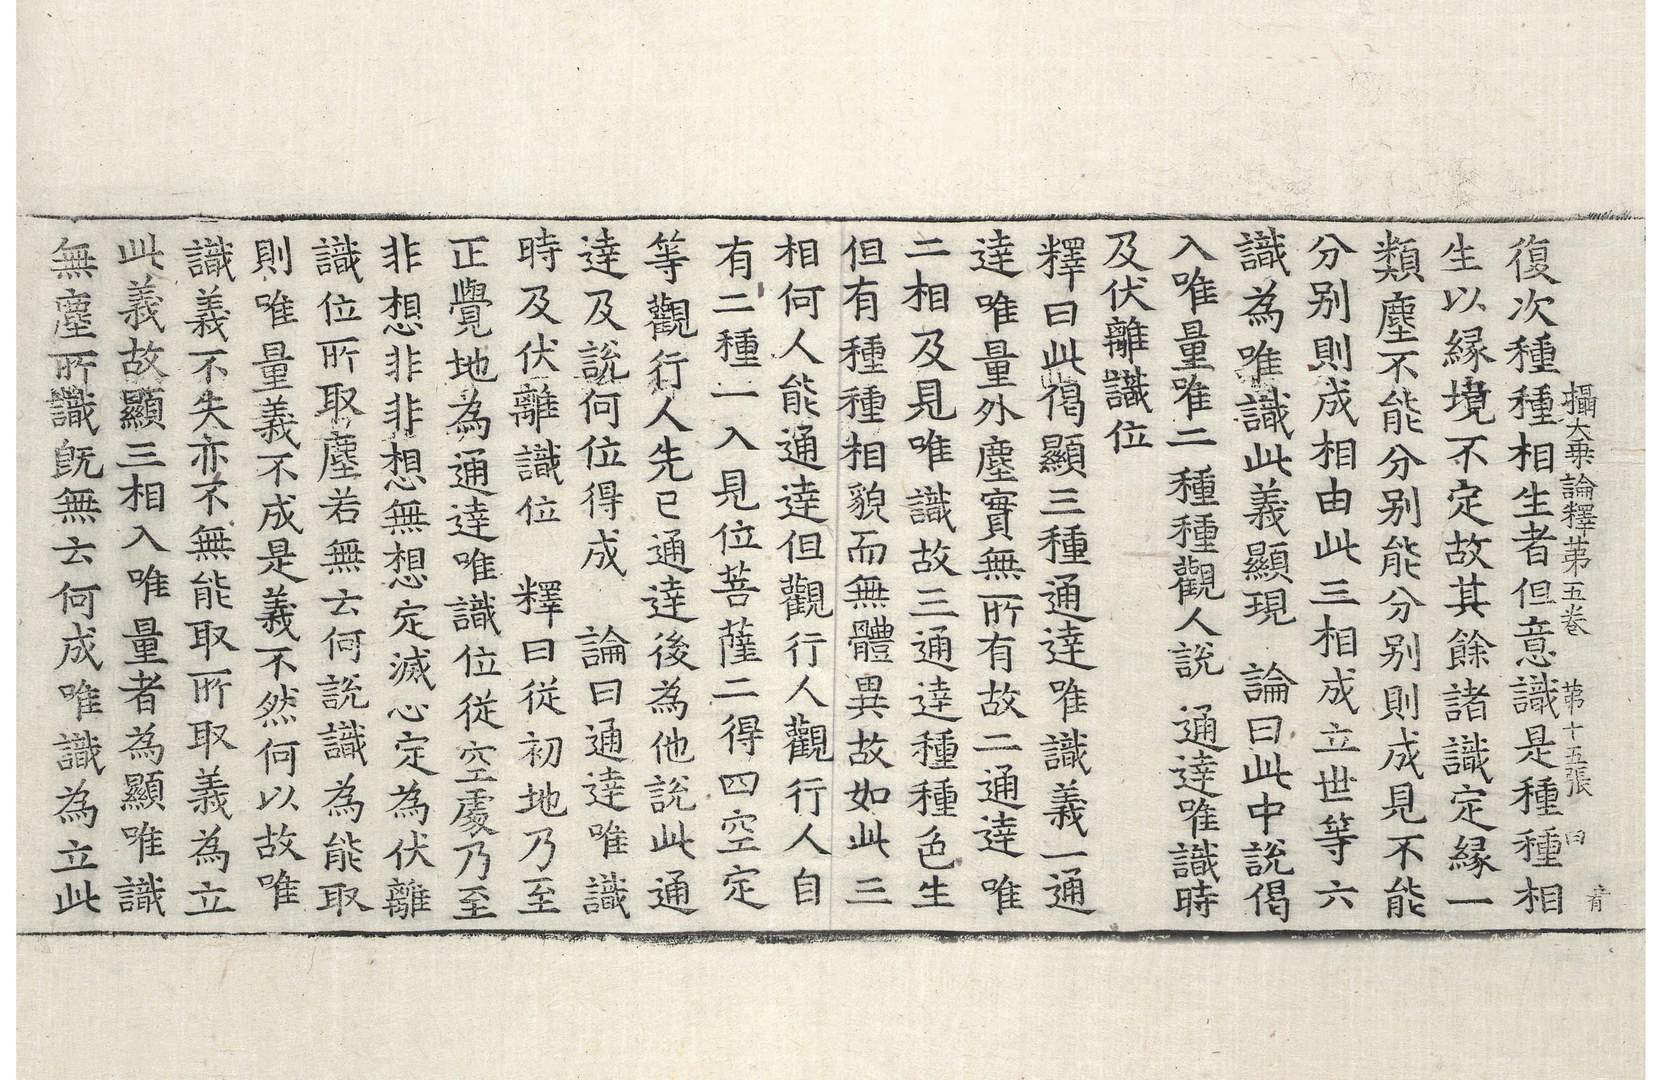 攝大乗論釋苐五巻　苐十五張　曰　音
復次種種相生者但意識是種種相
生以縁境不定故其餘諸識定縁一
類塵不能分别能分别則成見不能
分别則成相由此三相成立世等六
識為唯識此義顯現　論曰此中說偈
入唯量唯二　種種觀人說　通達唯識時
及伏離識位
釋曰此偈顯三種通達唯識義一通
達唯量外塵實無所有故二通達唯
二相及見唯識故三通達種種色生
但有種種相貌而無體異故如此三
相何人能通達但觀行人觀行人自
有二種一入見位菩薩二得四空定
等觀行人先已通達後為他說此通
達及說何位得成　論曰通達唯識
時及伏離識位　釋曰從初地乃至
正覺地為通達唯識位從空處乃至
非想非非想無想定滅心定為伏離
識位所取塵若無云何說識為能取
則唯量義不成是義不然何以故唯
識義不失亦不無能取所取義為立
此義故顯三相入唯量者為顯唯識
無塵所識既無云何成唯識為立此